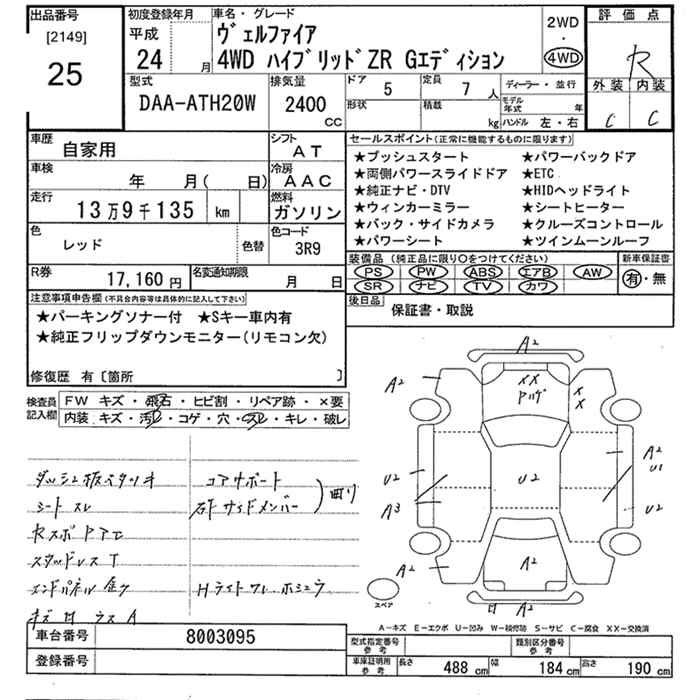 出品番号
[2149]
25
初度登録年月
平成
24 月
車名・グレード
ヴェルファイア
4WD ハイブリッドZR Gエディション
2WD
・
4WD
評価点
R
外装 内装
C C
型式
DAA-ATH20W
排気量
2400
CC
ドア 5
定員 7 人
形状
積載 kg
ディーラー・並行
モデル年式 年
ハンドル 左・右
車歴 自家用
シフト AT
車検 年 月( 日)
冷房 AAC
走行 13万9千135 km
燃料 ガソリン
色 レッド 色替
色コード 3R9
R券 17,160 円
名変通知期限 月 日
セールスポイント(正常に機能するものに限ります)
★プッシュスタート ★パワーバックドア
★両側パワースライドドア ★ETC
★純正ナビ・DTV ★HIDヘッドライト
★ウィンカーミラー ★シートヒーター
★バック・サイドカメラ ★クルーズコントロール
★パワーシート ★ツインムーンルーフ
装備品 (純正品に限り○をつけてください) 新車保証書
PS PW ABS エアB AW
SR ナビ TV カワ
有・無
後日品 保証書・取説
注意事項申告欄(不具合内容等は具体的に記入して下さい)
★パーキングソナー付 ★Sキー車内有
★純正フリップダウンモニター(リモコン欠)
修復歴 有〔箇所 〕
検査員記入欄
FW キズ・飛石・ヒビ割・リペア跡・×要
内装 キズ・汚レ・コゲ・穴・スレ・キレ・破レ
シート スレ
コアサポート
右F サイドメンバー
曲り
キズ
A2
A2
XX
XX
A2
U1
U2
U2
A3
U2
A2
A2
A2
スペア
A-キズ E-エクボ U-凹み W-補修跡 S-サビ C-腐食 XX-交換済
車台番号 8003095
登録番号
型式指定番号 参考
類別区分番号 参考
車庫証明用 参考
長さ 488 cm 幅 184 cm 高さ 190 cm